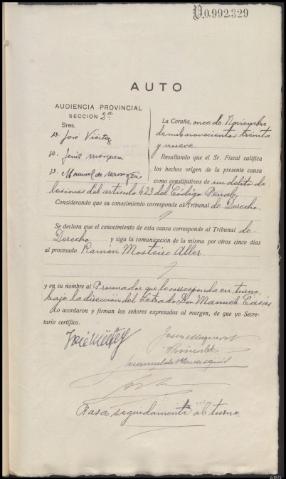 V.0.992.329
AUTO
AUDIENCIA PROVINCIAL
SECCIÓN 2ª
Sres.
D. José Viñitez
D. Jesús Marquez
D. Manuel de
La Coruña, once de Noviembre
de mil novecientos treinta
y nueve
Resultando que el Sr. Fiscal califica
los hechos origen de la presente causa
como constitutivos de un delito de
lesiones del artículo 423 del Código Penal
Considerando que su conocimiento corresponde al tribunal de Derecho
Se declara que el conocimiento de esta causa corresponde al Tribunal de
Derecho y siga la comunicación de la misma por otros cinco días
al procesado Ramón Mosteiro Aller
y en su nombre al Procurador que le corresponda en turno,
bajo la dirección del Letrado Don Manuel
Lo acordaron y firman los señores expresados al margen, de que yo Secre-
tario certifico.
Pasa seguidamente al turno